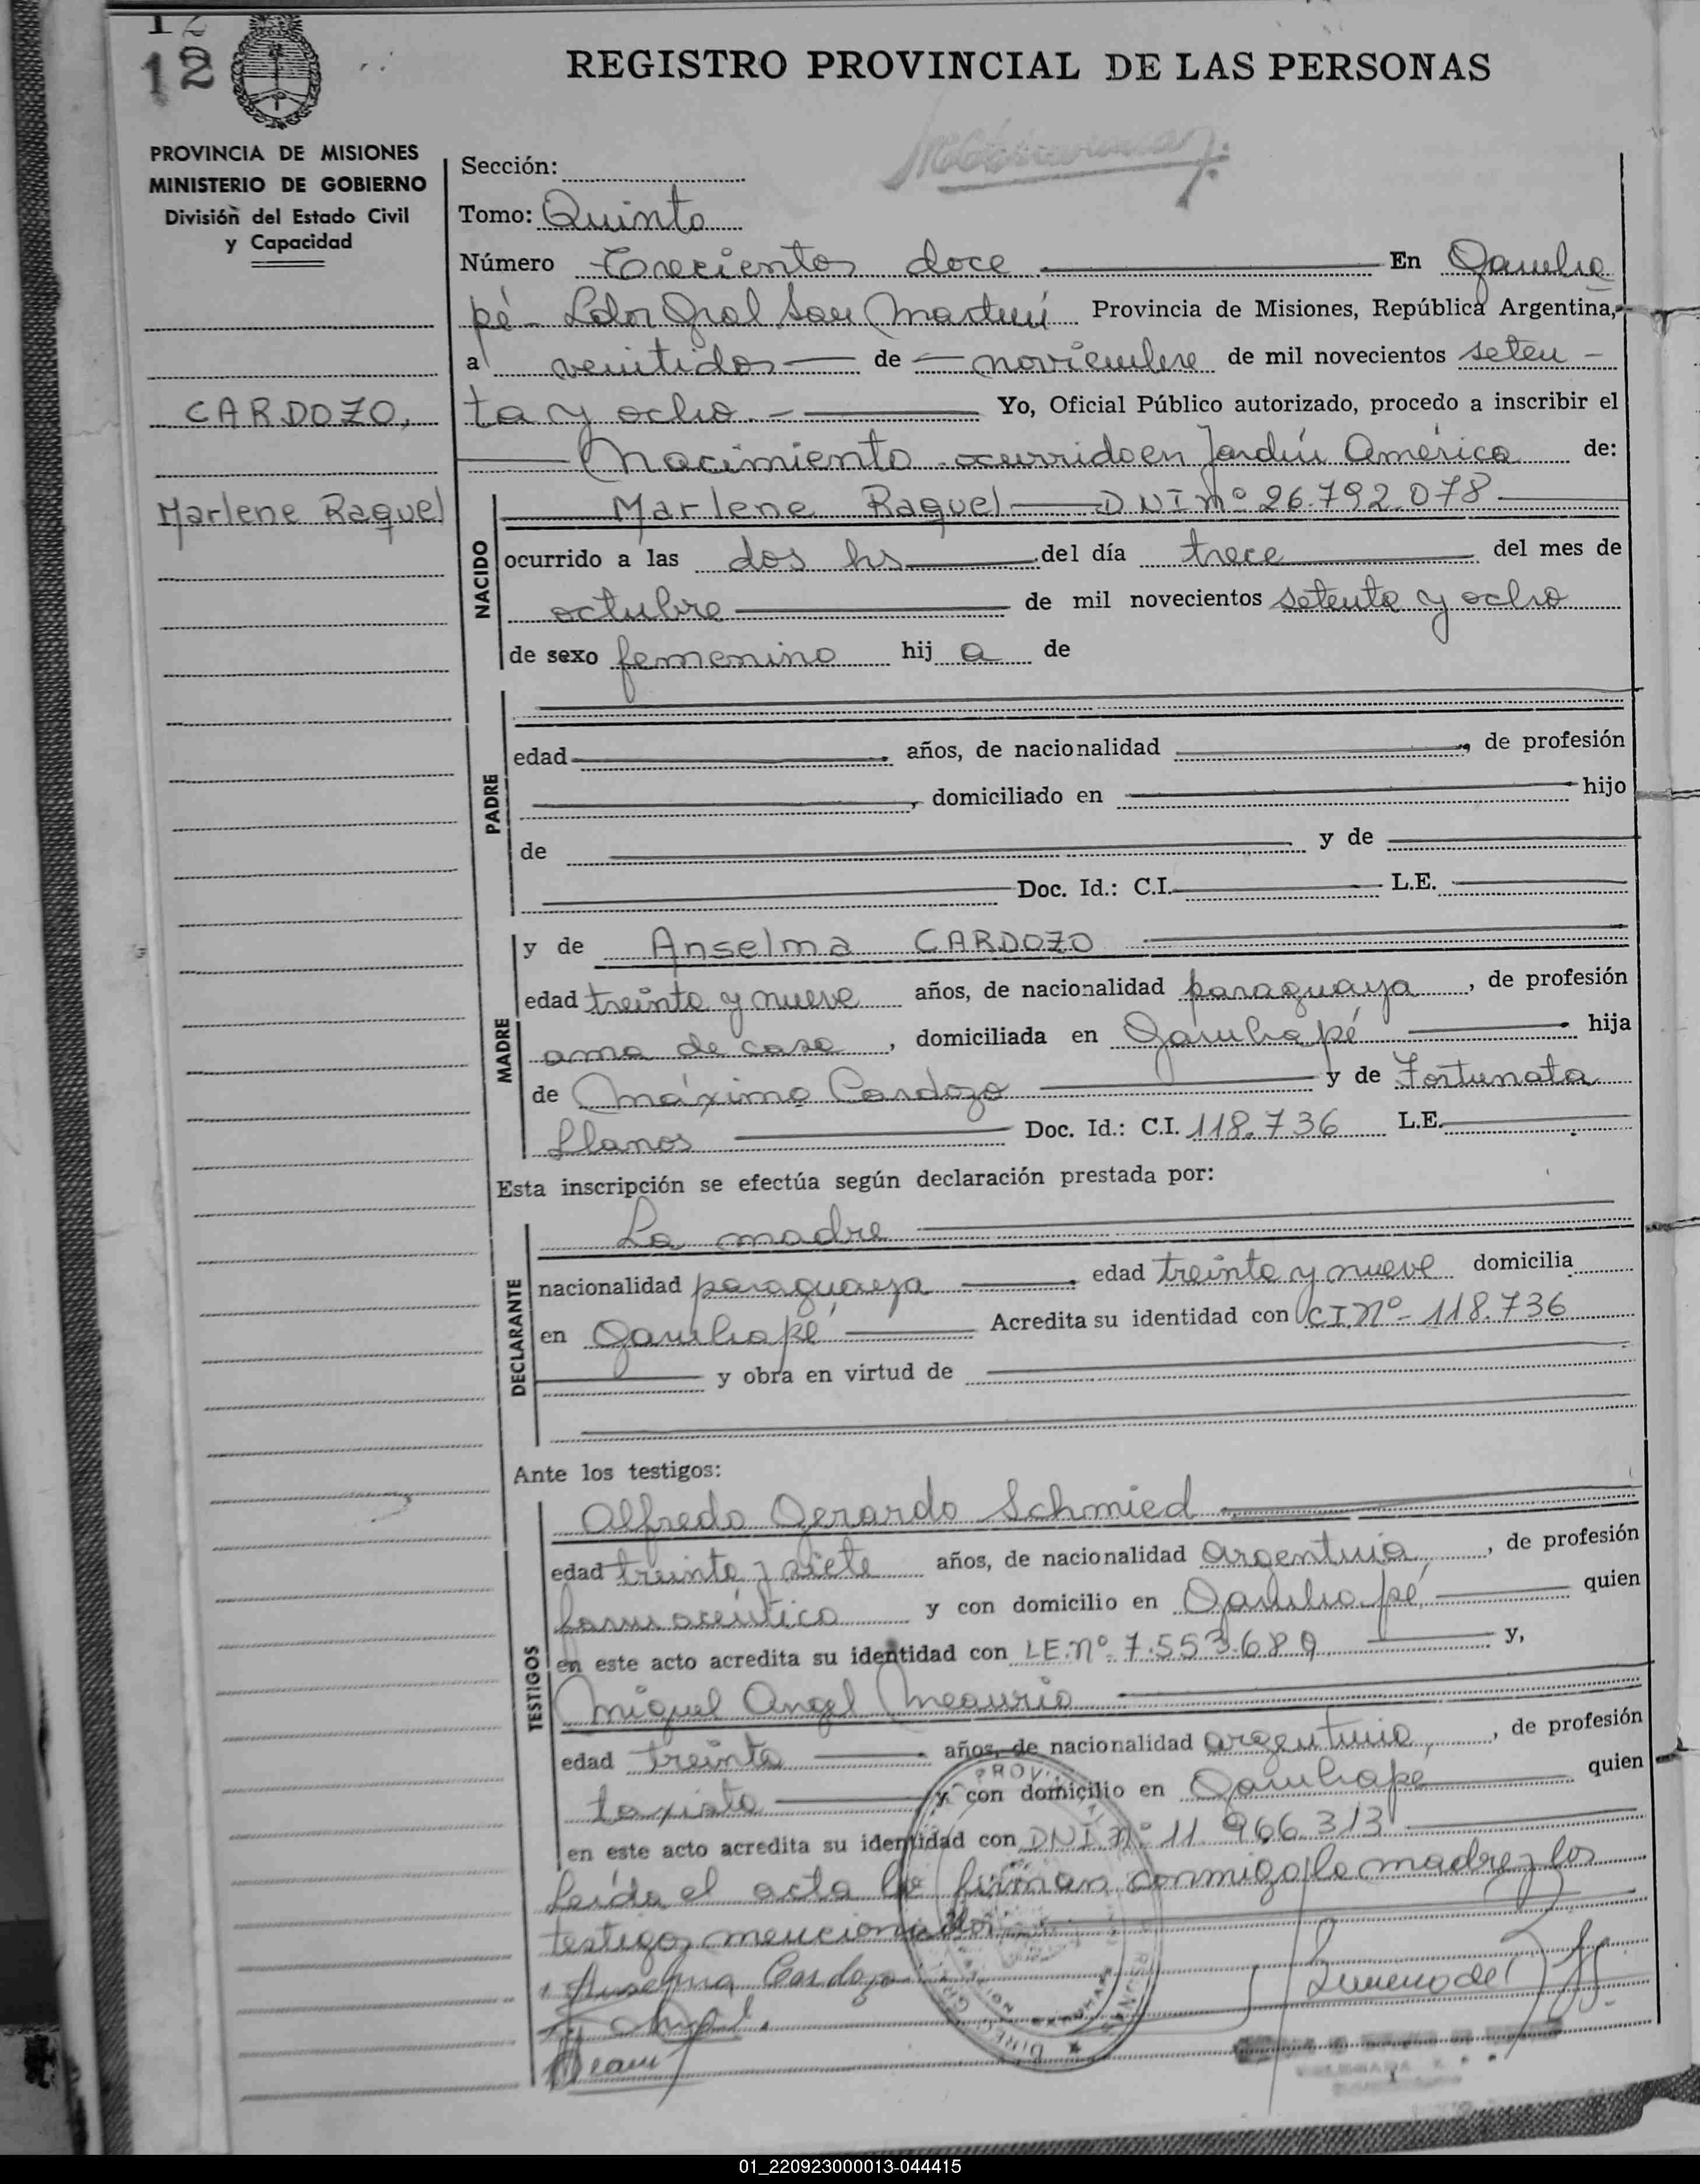 12
12
REGISTRO PROVINCIAL DE LAS PERSONAS
PROVINCIA DE MISIONES
MINISTERIO DE GOBIERNO
División del Estado Civil
y Capacidad
CARDOZO,
Marlene Raquel
Sección:
Tomo: Quinto
Número Trecientos doce En Garuha
pé - Ldor Gral San Martín Provincia de Misiones, República Argentina,
a veintidos de noviembre de mil novecientos seten -
ta y ocho. - Yo, Oficial Público autorizado, procedo a inscribir el
Nacimiento ocurrido en Jardín América de:
NACIDO
Marlene Raquel DNI nº 26.792.078
ocurrido a las dos hs del día trece del mes de
octubre de mil novecientos setenta y ocho
de sexo femenino hij a de
PADRE
edad , años, de nacionalidad , de profesión
, domiciliado en hijo
de y de
Doc. Id.: C.I. L.E.
MADRE
y de Anselma CARDOZO
edad treinta y nueve años, de nacionalidad paraguaya , de profesión
ama de casa , domiciliada en Garuhapé hija
de Máximo Cardozo y de Fortunata
Llanos Doc. Id.: C.I. 118.736 L.E.
Esta inscripción se efectúa según declaración prestada por:
DECLARANTE
La madre
nacionalidad paraguaya edad treinta y nueve domicilia
en Garuhapé Acredita su identidad con CI.Nº- 118.736
y obra en virtud de
Ante los testigos:
TESTIGOS
Alfredo Gerardo Schmied
edad treinta y siete años, de nacionalidad argentina , de profesión
farmacéutico y con domicilio en Garuhapé, quien
en este acto acredita su identidad con LE.nº. 7.553.689 y,
Miguel Angel Meaurio
edad treinta años, de nacionalidad argentino, , de profesión
taxista y con domicilio en Garuhape quien
en este acto acredita su identidad con DNI.nº 11.966.313
Leída el acta la firman conmigo la madre y los
testigos mencionados
Anselma Cardozo
Meau
01_220923000013-044415